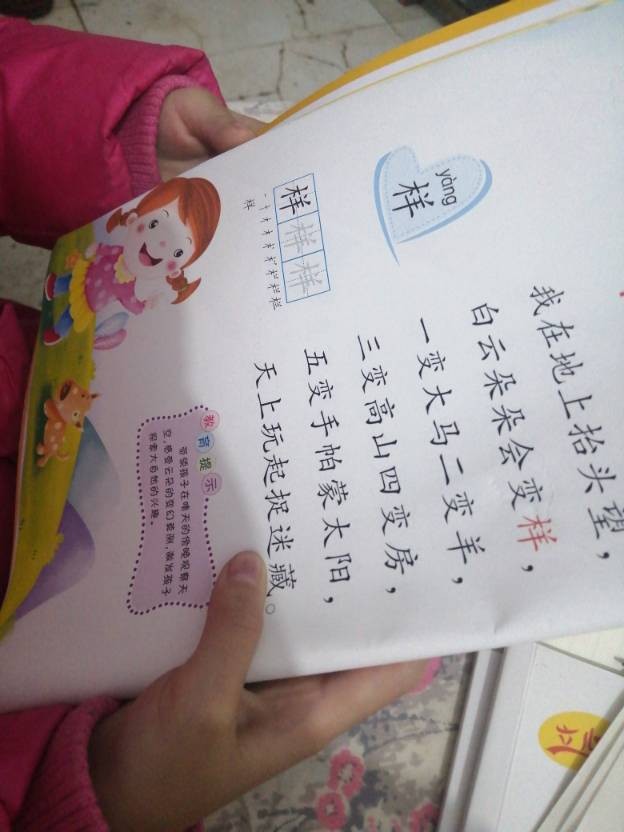 yàng
样
我在地上抬头望，
白云朵朵会变样，
一变大马二变羊，
三变高山四变房，
五变手帕蒙太阳，
天上玩起捉迷藏。
样样样
教育提示
带领孩子在晴天的傍晚观察天
空，感受云朵的变幻莫测，激发孩子
探索大自然的兴趣。